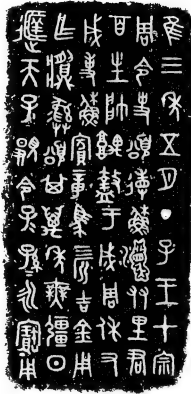 隹三年五月丁巳王才宗
周令史頌省穌友里君
百生帥盩于成周休又
成事穌賓章馬四匹吉金用
乍彝頌其萬年無彊日
天子令子孫永寶用